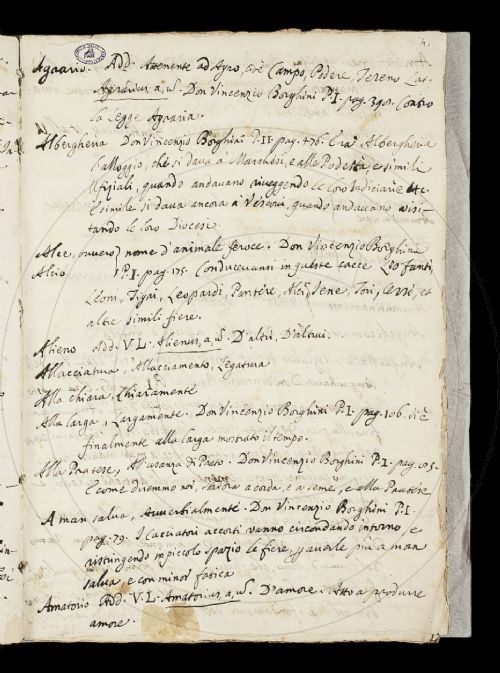 4.
Agrario. Add. Attenente ad Agro, cioè Campo, Podere, Tereno Lat.
Agrarius, a, u͂. Don Vincenzio Borghini P.I. pag. 398. Contro
la Legge Agraria.
Alberghera Don Vincenzio Borghini P.II. pag. 476. Era Alberghera
l'alloggio, che si dava a Marchesi, e alle Podestà, e simili
Ufiziali, quando andavano riveggendo le loro Iudiciarie
E simile si dava ancora a' Vescovi, quando andavano visi-
tando le loro Diocesi.
Alce, ovvero} nome d'animale feroce. Don Vincenzio Borghini
Alcio P.I. pag. 175. Conducevansi in queste cacce Liofanti,
Leoni, Tigri, Leopardi, Pantere, Alci, Iene, Tori, Cervi, et
altre simili fiere.
Alieno Add. V.L. Alienus, a, u͂. D'altri, D'altrui.
Allacciatura, Allacciamento, Legatura
Alla chiara, Chiaramente
Alla larga, Largamente. Don Vincenzio Borghini P.I. pag. 106. si è
finalmente alla larga mostrato il tempo.
Alla Pratese, All'usanza di Prato. Don Vincenzio Borghini P.I. pag.
E come diremmo noi, lavora a corda, e a seme, e alla Pratese
A man salva, Avverbialmente. Don Vincenzio Borghini P.I.
pag. 79. I Cacciatori accorti vanno circondando intorno, e
ristringendo in piccolo spazio le fiere, p averle più a man
salva, e con minor fatica
Amatorio Add. V.L. Amatorius, a, u͂. D'amore. Atto a produrre
amore.